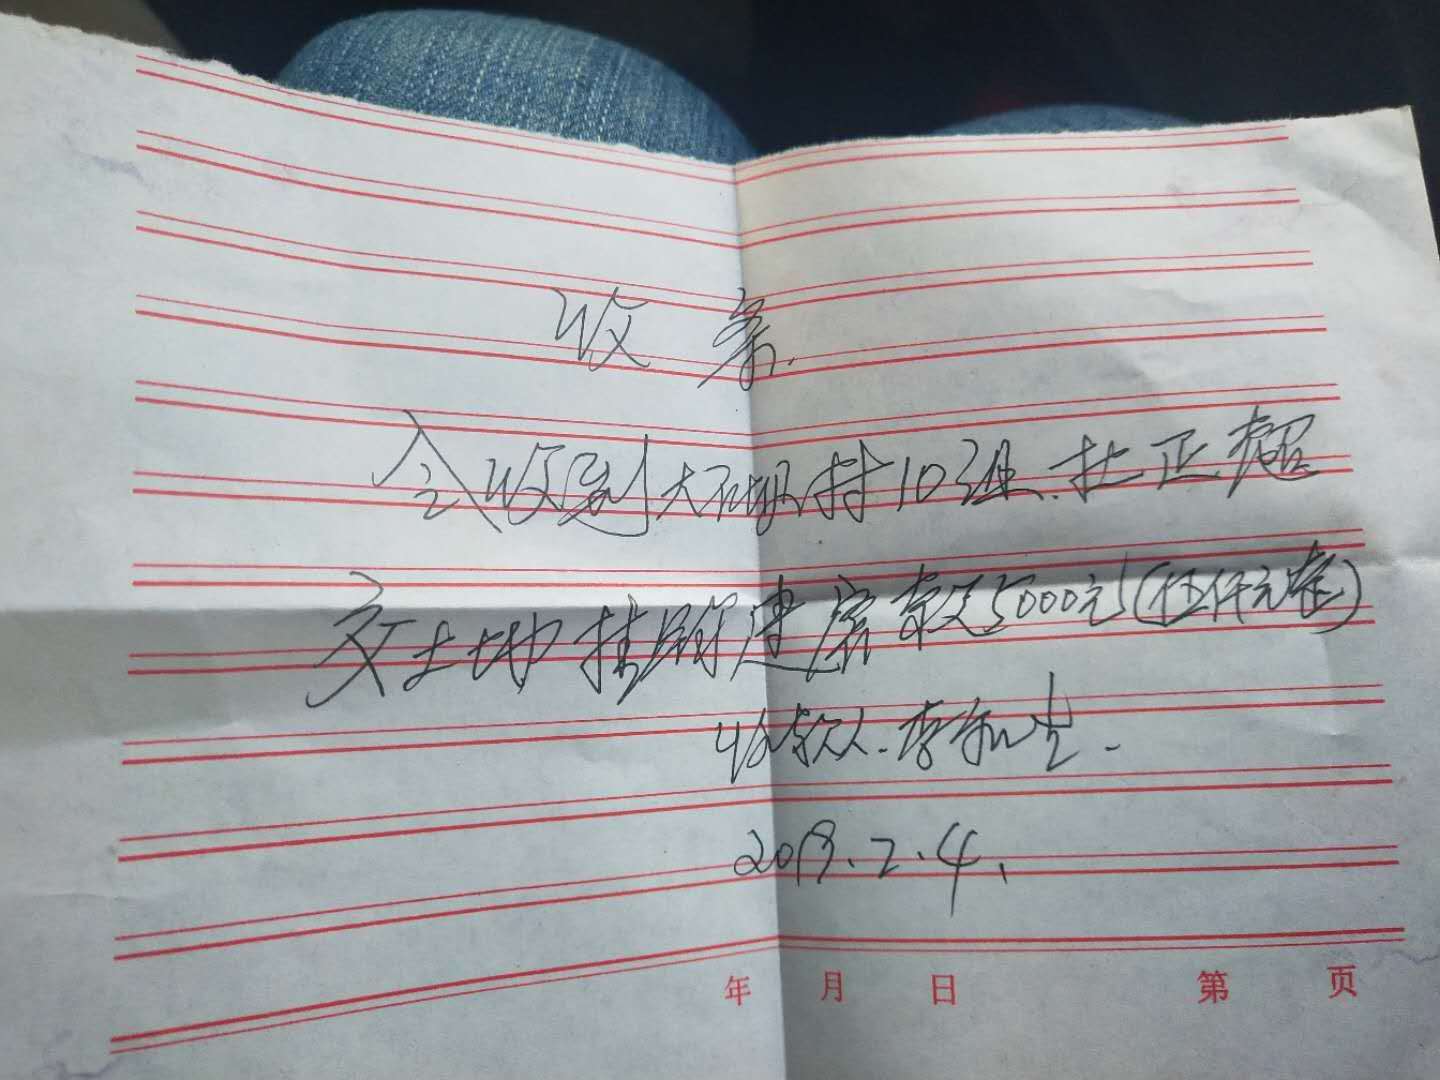 收条
今收到大石坝村10组.杜正超
交土地挂钩建房款5000元(伍仟元整)
收款人.李和生.
2013.2.4.
年 月 日 第 页